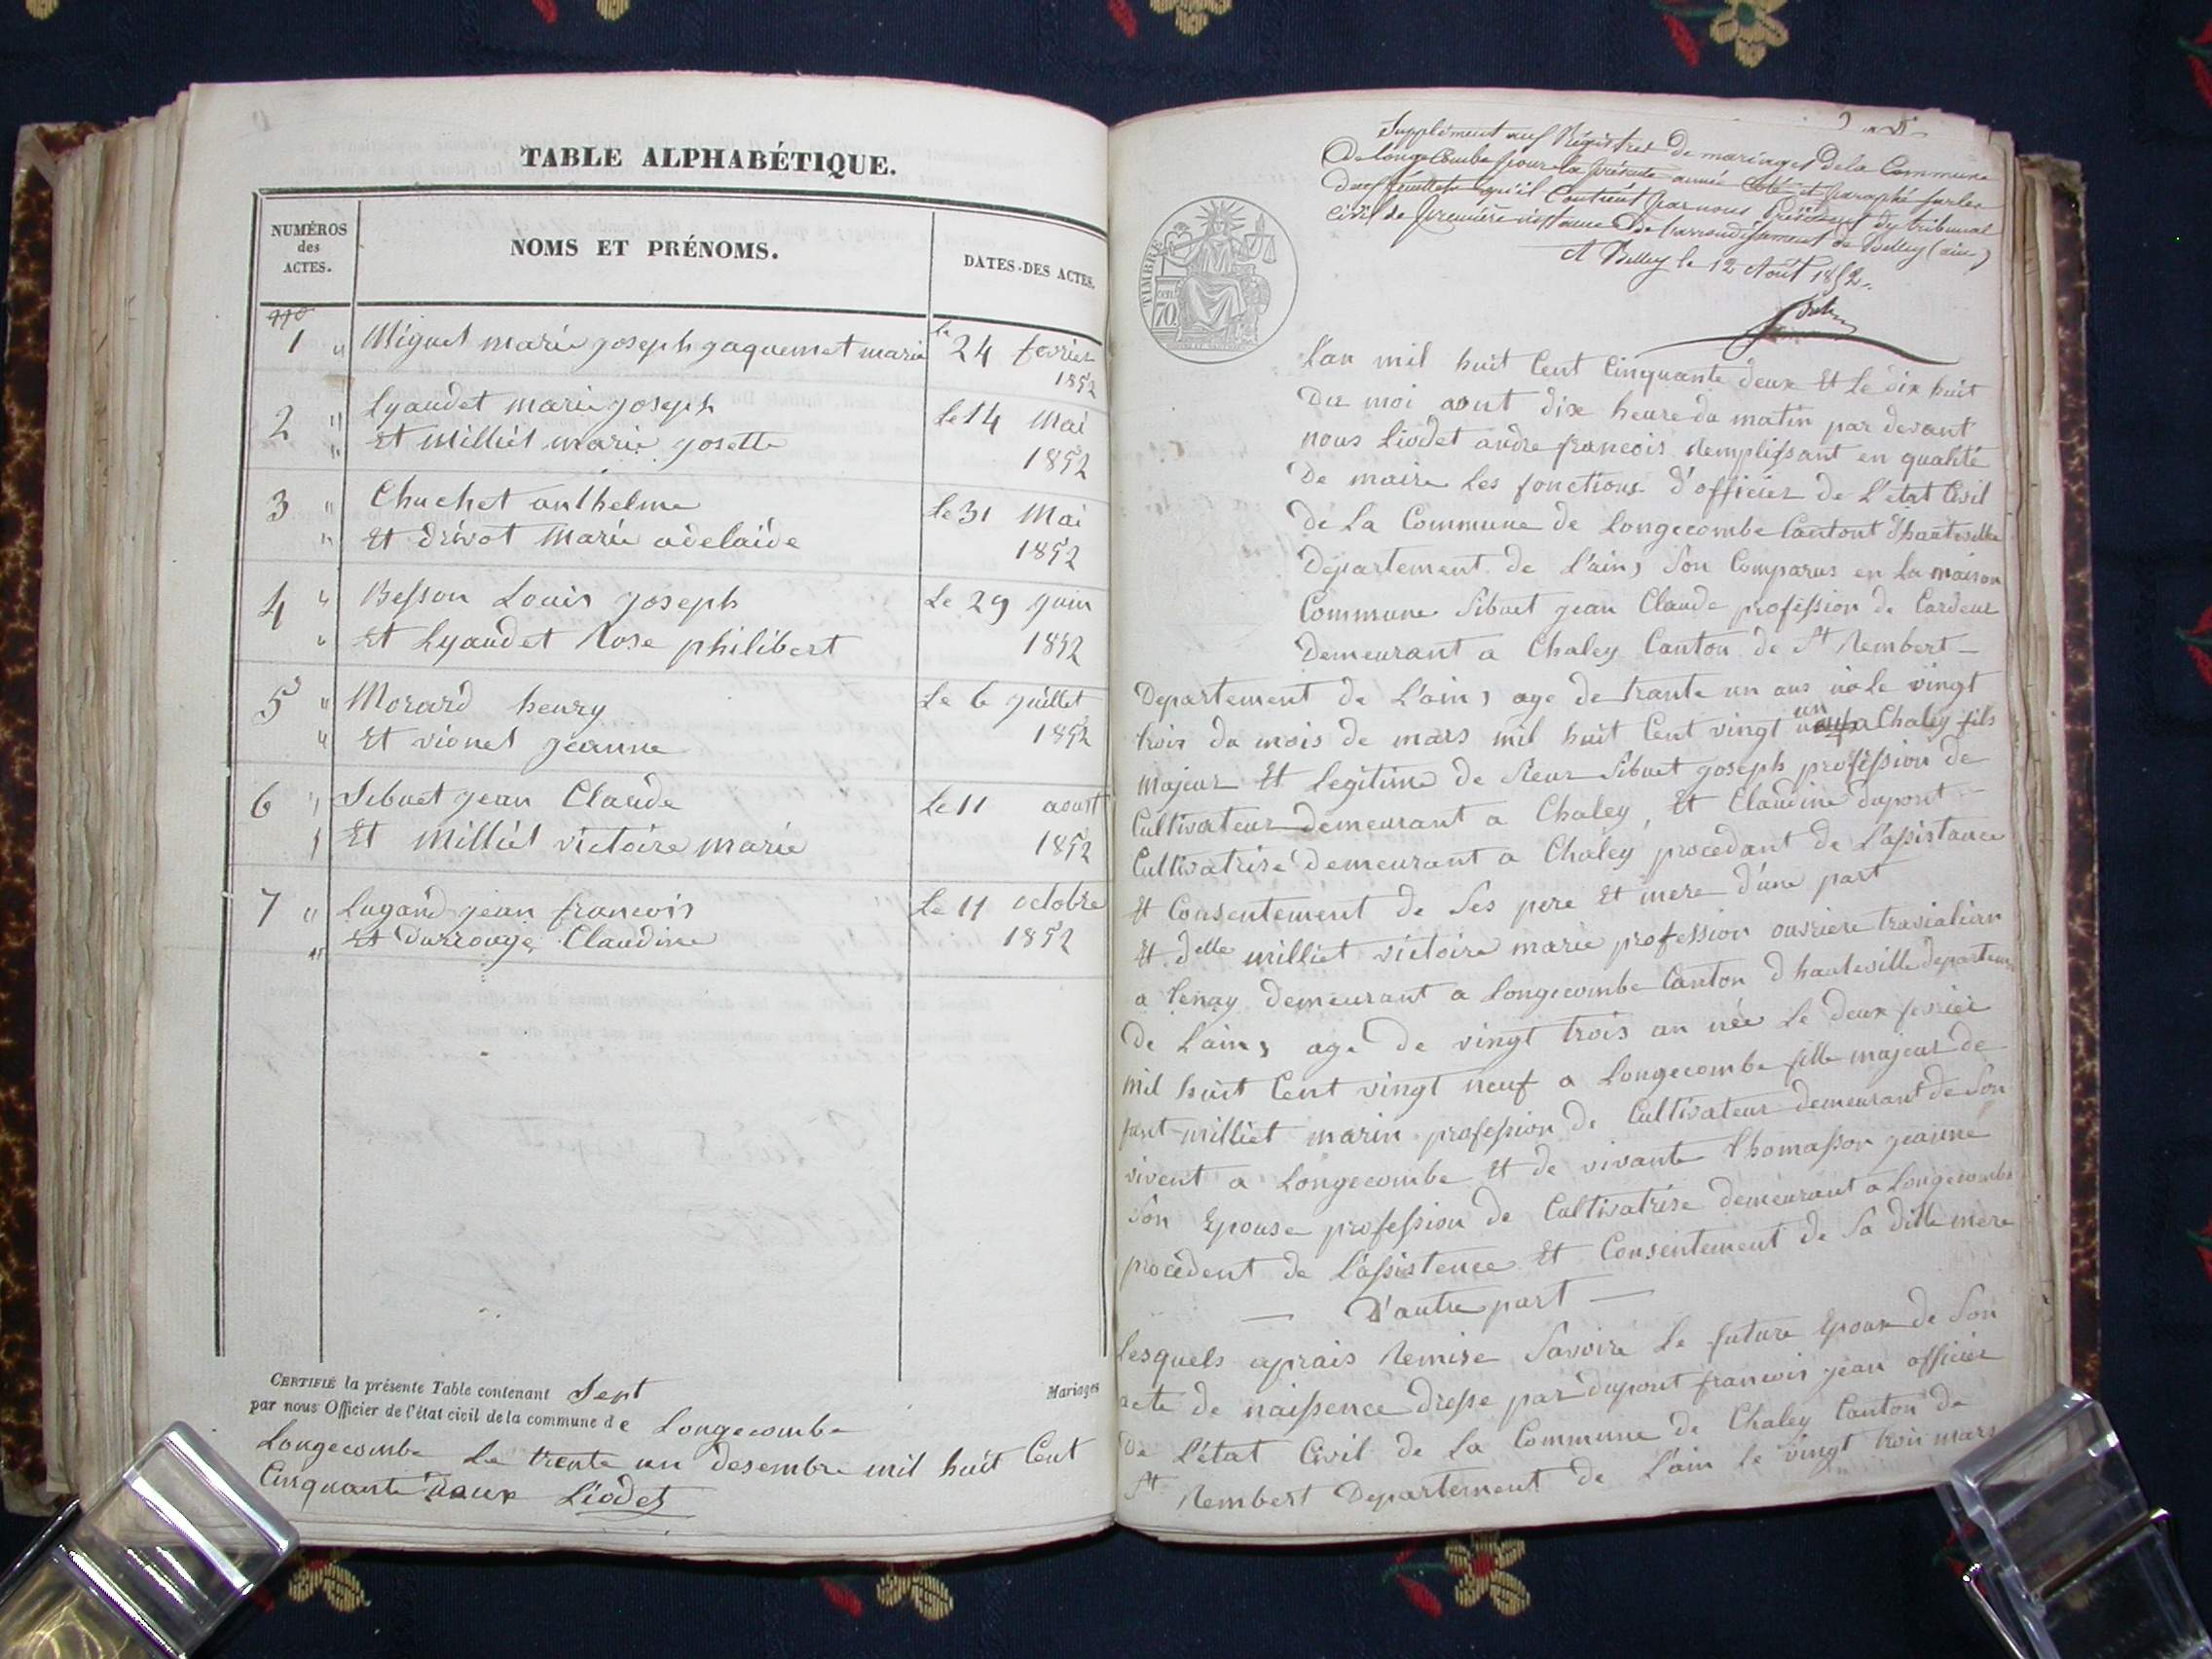 TABLE ALPHABÉTIQUE.
NUMÉROS
des
ACTES.
NOMS ET PRÉNOMS.
DATES DES ACTES.
1 " Miguet marie joseph jaquemet marie le 24 fevrier
1852
2 " Lyaudet marie joseph Le 14 Mai
" Et Milliet marie josette 1852
3 " Chuchet anthelme Le 31 Mai
" Et drivot Marie adelaide 1852
4 " Besson Louis joseph Le 29 juin
" Et Lyaudet Rose philibert 1852
5 " Morard henry Le 6 juillet
" Et vionet jeanne 1852
6 " Sibuet jean Claude Le 11 aoust
" Et Milliet victoire marie 1852
7 " Lugand jean francois Le 11 octobre
" Et Durrouge Claudine 1852
CERTIFIÉ la présente Table contenant Sept Mariages
par nous Officier de l'état civil de la commune de Longecombe
Longecombe Le trente un desembre mil huit Cent
Cinquante deux Liodet
Supplément aux Régistres de mariages de la Commune
de longecombe pour la présente année Coté et paraphé sur les
deux feuillets qu'il Contient par nous Président du tribunal
civil de première instance de l'arrondissement de Belley (ain)
A Belley le 12 Août 1852.
TIMBRE
70
L'an mil huit Cent Cinquante deux Et Le dix huit
Du moi aout dix heure du matin par devant
nous Liodet andre francois Remplissant en qualité
De maire Les fonctions d'officier de L'etat Civil
de La Commune de Longecombe Cantont d'hauteville
Departement de L'ain, Son Comparus en La maison
Commune Sibuet jean Claude profession de Cardeur
Demeurant a Chaley Canton de St Rembert
Departement de L'ain, age de trante un ans né le vingt
trois du mois de mars mil huit Cent vingt un a Chaley fils
majeur Et Legitime de Sieur Sibuet joseph profession de
Cultivateur demeurant a Chaley, Et Claudine duport
Cultivatrise demeurant a Chaley procedant de L'assistance
Et Consentement de Ses pere Et mere d'une part
Et delle milliet victoire marie profession ouvriere
a Tenay demeurant a Longecombe Canton d hauteville departement
de L'ain, age de vingt trois an née Le deux fevrier
mil huit Cent vingt neuf a Longecombe fille majeur de
milliet marin profession de Cultivateur demeurant de Son
vivent a Longecombe Et de vivante thomasson jeanne
Son Epouse profession de Cultivatrise demeurant a Longecombe
procedent de L'assistence Et Consentement de Sa ditte mere
— D'autre part —
Lesquels aprais Remise Savoire Le future Epoux de Son
acte de naissence dresse par duport francois jean officier
De L'état Civil de La Commune de Chaley Canton de
St Rembert Departement de L'ain le vingt trois mars